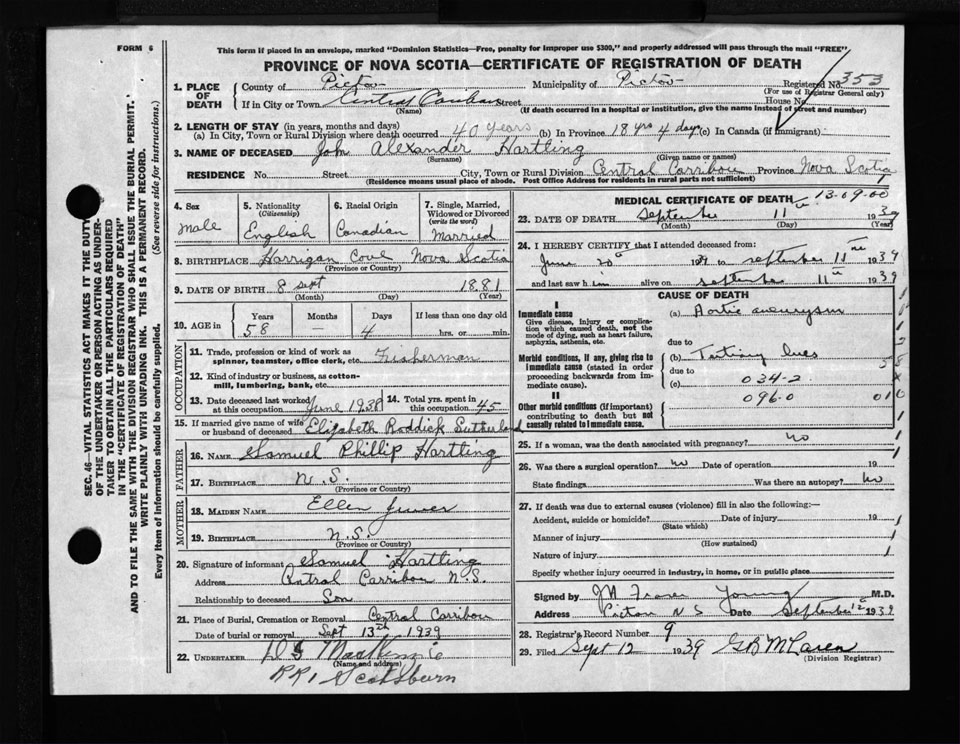 FORM 6
This form if placed in an envelope, marked "Dominion Statistics—Free, penalty for improper use $300," and properly addressed will pass through the mail "FREE"
PROVINCE OF NOVA SCOTIA—CERTIFICATE OF REGISTRATION OF DEATH
SEC. 46—VITAL STATISTICS ACT MAKES IT THE DUTY
OF THE UNDERTAKER OR PERSON ACTING AS UNDER-
TAKER TO OBTAIN ALL THE PARTICULARS REQUIRED
IN THE "CERTIFICATE OF REGISTRATION OF DEATH"
AND TO FILE THE SAME WITH THE DIVISION REGISTRAR WHO SHALL ISSUE THE BURIAL PERMIT.
WRITE PLAINLY WITH UNFADING INK. THIS IS A PERMANENT RECORD.
Every item of information should be carefully supplied. (See reverse side for instructions.)
1. PLACE OF DEATH
County of Pictou Municipality of Pictou Registered No. 353
(For use of Registrar General only)
If in City or Town Central Caribou Street House No.
(Name) (If death occurred in a hospital or institution, give the name instead of street and number)
2. LENGTH OF STAY (in years, months and days)
(a) In City, Town or Rural Division where death occurred 40 years (b) In Province 18 yrs 4 days (c) In Canada (if immigrant)
3. NAME OF DECEASED John Alexander Hartling
(Surname) (Given name or names)
RESIDENCE No. Street City, Town or Rural Division Central Carribou Province Nova Scotia
(Residence means usual place of abode. Post Office Address for residents in rural parts not sufficient)
4. Sex male
5. Nationality (Citizenship) English
6. Racial Origin Canadian
7. Single, Married, Widowed or Divorced (write the word) Married
8. BIRTHPLACE Harrigan Cove Nova Scotia
(Province or Country)
9. DATE OF BIRTH 8 Sept 1881
(Month) (Day) (Year)
10. AGE in Years 58 Months — Days 4 If less than one day old hrs. or min.
OCCUPATION
11. Trade, profession or kind of work as spinner, teamster, office clerk, etc. Fisherman
12. Kind of industry or business, as cotton-mill, lumbering, bank, etc.
13. Date deceased last worked at this occupation June 1938 14. Total yrs. spent in this occupation 45
15. If married give name of wife or husband of deceased Elizabeth Roddick Sutherland
FATHER
16. NAME Samuel Phillip Hartling
17. BIRTHPLACE N.S.
(Province or Country)
MOTHER
18. MAIDEN NAME Ellen
19. BIRTHPLACE N.S.
(Province or Country)
20. Signature of informant Samuel Hartling
Address Central Carribou N.S.
Relationship to deceased Son
21. Place of Burial, Cremation or Removal Central Carribou
Date of burial or removal Sept 13th 1939
22. UNDERTAKER MacKenzie
(Name and address)
RR1 Scotsburn
MEDICAL CERTIFICATE OF DEATH 13-09-00
23. DATE OF DEATH September 11th 1939
(Month) (Day) (Year)
24. I HEREBY CERTIFY that I attended deceased from:
June 20th 1939 to September 11th 1939
and last saw h im alive on September 11th 1939
CAUSE OF DEATH
I
Immediate cause
Give disease, injury or complication which caused death, not the mode of dying, such as heart failure, asphyxia, asthenia, etc.
(a) Aortic aneurysm
due to
Morbid conditions, if any, giving rise to immediate cause (stated in order proceeding backwards from immediate cause).
(b) Tertiary lues
due to
(c) 034-2
II
Other morbid conditions (if important) contributing to death but not causally related to immediate cause.
096-0
25. If a woman, was the death associated with pregnancy? no
26. Was there a surgical operation? no Date of operation 19
State findings Was there an autopsy? no
27. If death was due to external causes (violence) fill in also the following:—
Accident, suicide or homicide? Date of injury 19
(State which)
Manner of injury
(How sustained)
Nature of injury
Specify whether injury occurred in industry, in home, or in public place
Signed by J M Fraser Young M.D.
Address Pictou N S Date September 12th 1939
28. Registrar's Record Number 9
29. Filed Sept 12 1939 G B McLaren
(Division Registrar)